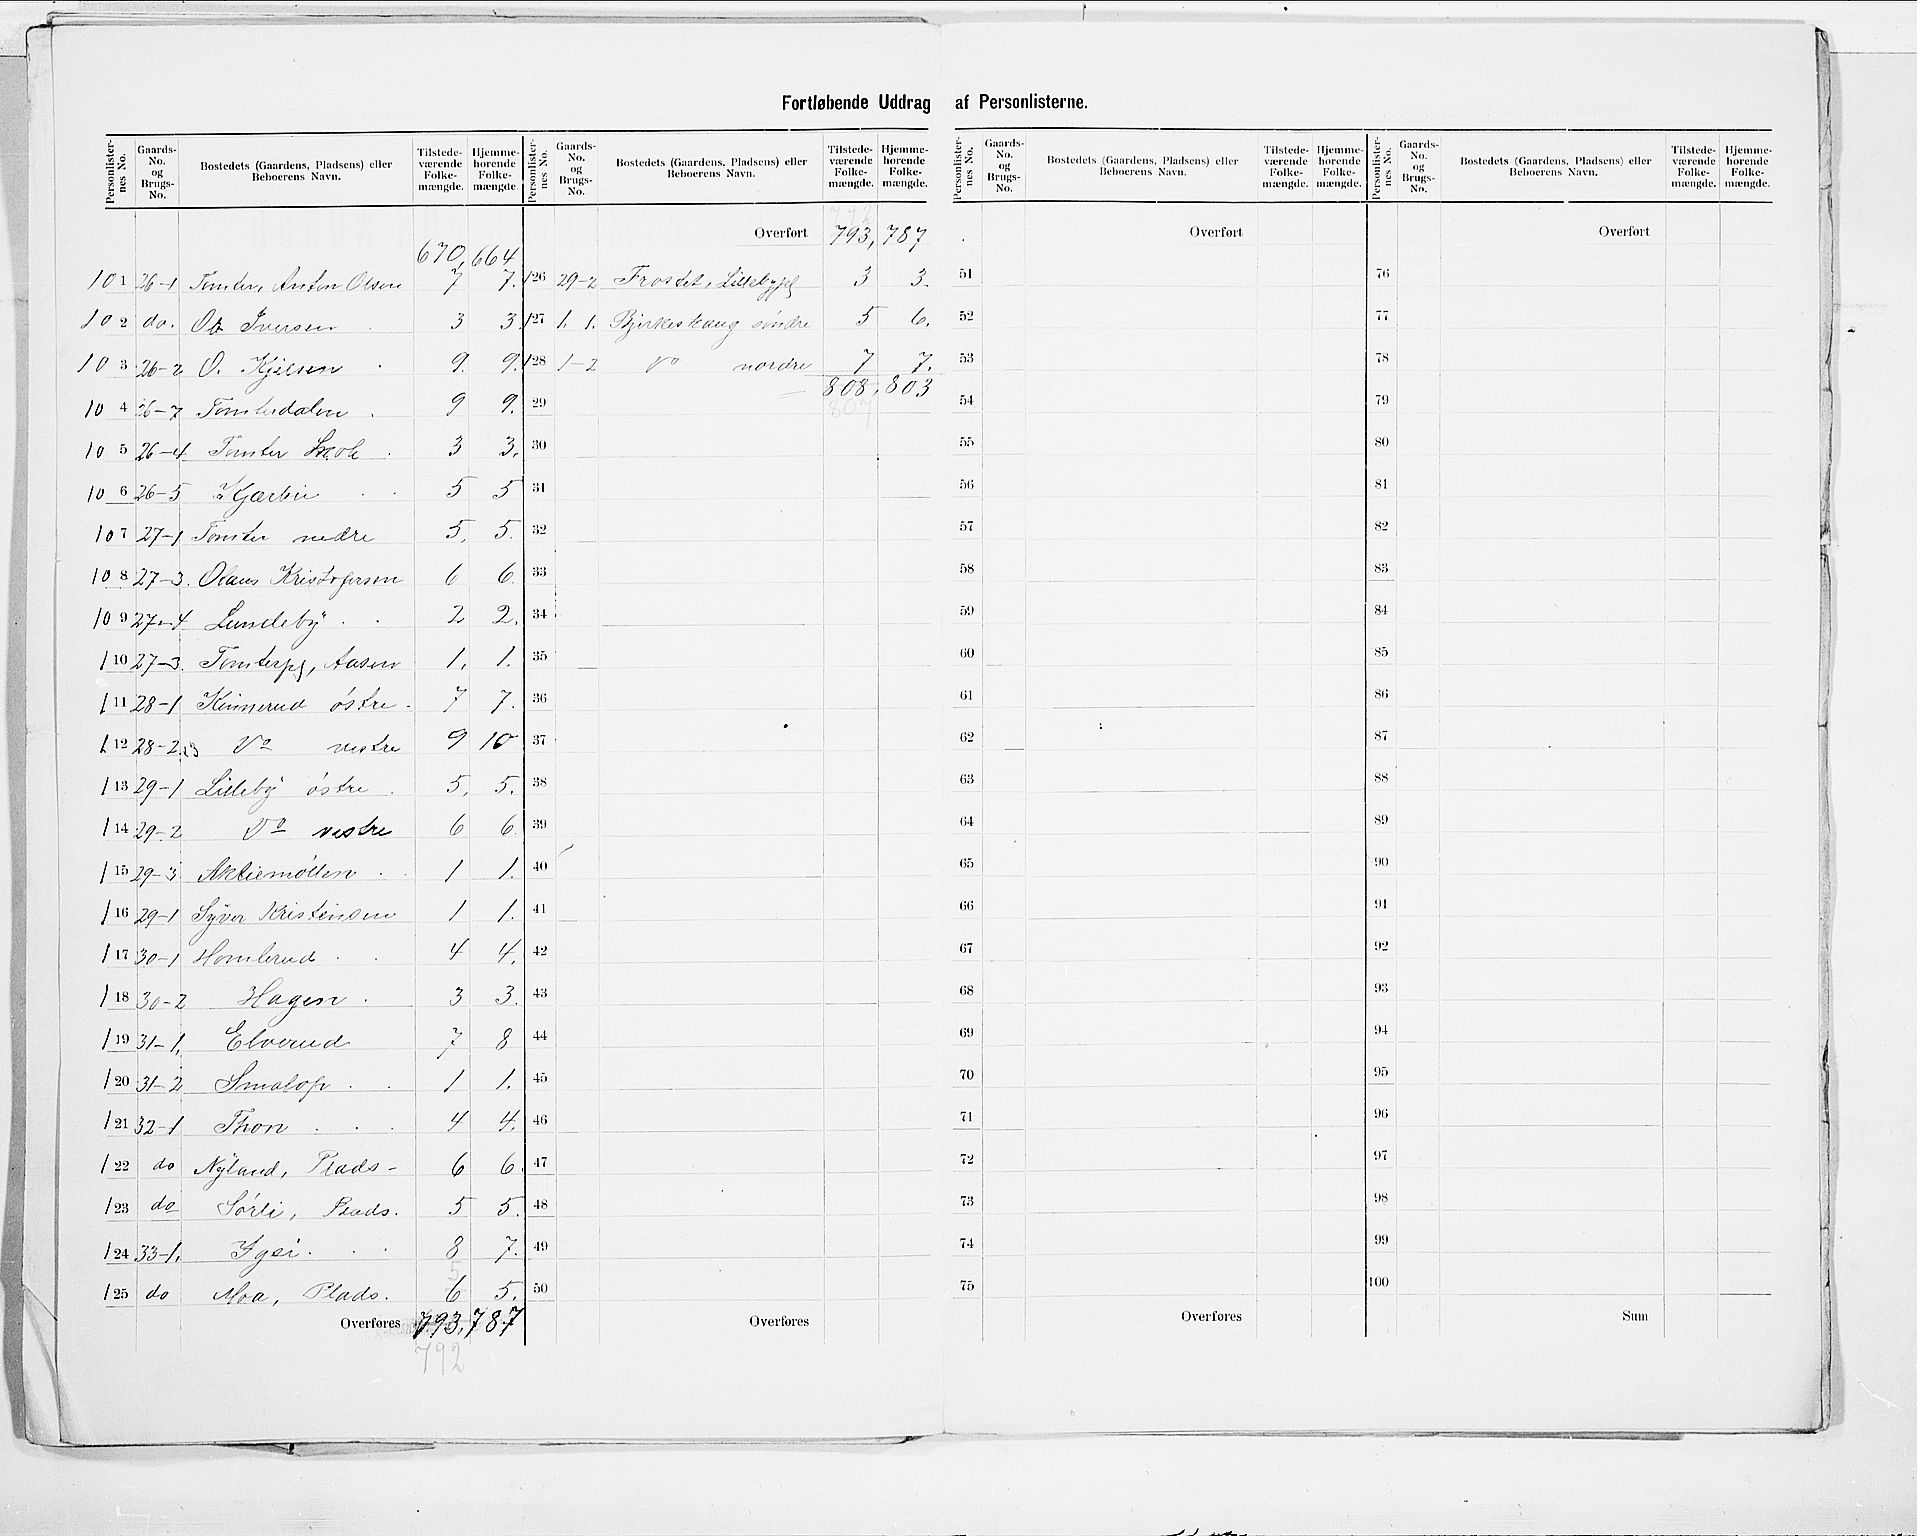 Fortløbende Uddrag af Personlisterne.
Personlister-nes No. | Gaards-No. og Brugs-No. | Bostedets (Gaardens, Pladsens) eller Beboerens Navn. | Tilstede-værende Folke-mængde. | Hjemme-hørende Folke-mængde.
670, 664
101 26-1 Tomter, Anton Olsen 7 7.
102 do. Iversen 3 3.
103 26-2 O. Kjelsen 9. 9.
104 26-7 Tomterdalen 9 9.
105 26-4 Tomter Skole 3 3.
106 26-5 Kjærbu 5 5
107 27-1 Tomter nedre 5. 5.
108 27-3. Olaus Kristofersen 6 6.
109 27-4 Lundeby 2 2.
110 27-3. Tomterpl, Aasen 1. 1.
111 28-1 Kinnerud østre 7 7.
112 28-2,3 Do vestre 9 10
113 29-1 Lilleby østre 5. 5.
114 29-2 Do vestre 6 6.
115 29-3 Aktiemøllen 1 1.
116 29-1 Syver Kristensen 1 1.
117 30-1 Homlerud 4 4.
118 30-2 Hagen 3 3.
119 31-1. Elverud 7 8
120 31-2 Smalop 1 1.
121 32-1 Thon 4 4.
122 do Nyland, Plads- 6 6.
123 do Sørli, Plads. 5 5.
124 33-1. Ygsi 8 7.
5
125 do Moa, Plads. 6 5.
Overføres 793, 787
792
Personlister-nes No. | Gaards-No. og Brugs-No. | Bostedets (Gaardens, Pladsens) eller Beboerens Navn. | Tilstede-værende Folke-mængde. | Hjemme-hørende Folke-mængde.
792
Overført 793, 787
126 29-2 Frostet, Lillebypl 3 3.
127 1. 1. Bjerkeskaug søndre 5 6.
128 1-2 Do nordre 7 7.
808, 803
29 807
30
31
32
33
34
35
36
37
38
39
40
41
42
43
44
45
46
47
48
49
50
Overføres
Personlister-nes No. | Gaards-No. og Brugs-No. | Bostedets (Gaardens, Pladsens) eller Beboerens Navn. | Tilstede-værende Folke-mængde. | Hjemme-hørende Folke-mængde.
Overført
51
52
53
54
55
56
57
58
59
60
61
62
63
64
65
66
67
68
69
70
71
72
73
74
75
Overføres
Personlister-nes No. | Gaards-No. og Brugs-No. | Bostedets (Gaardens, Pladsens) eller Beboerens Navn. | Tilstede-værende Folke-mængde. | Hjemme-hørende Folke-mængde.
Overført
76
77
78
79
80
81
82
83
84
85
86
87
88
89
90
91
92
93
94
95
96
97
98
99
100
Sum